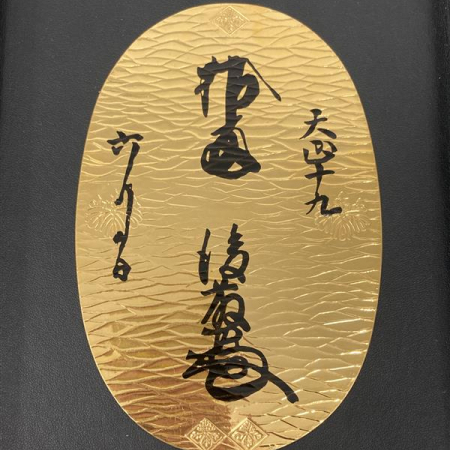 天正十九
拾両 後藤
六月日